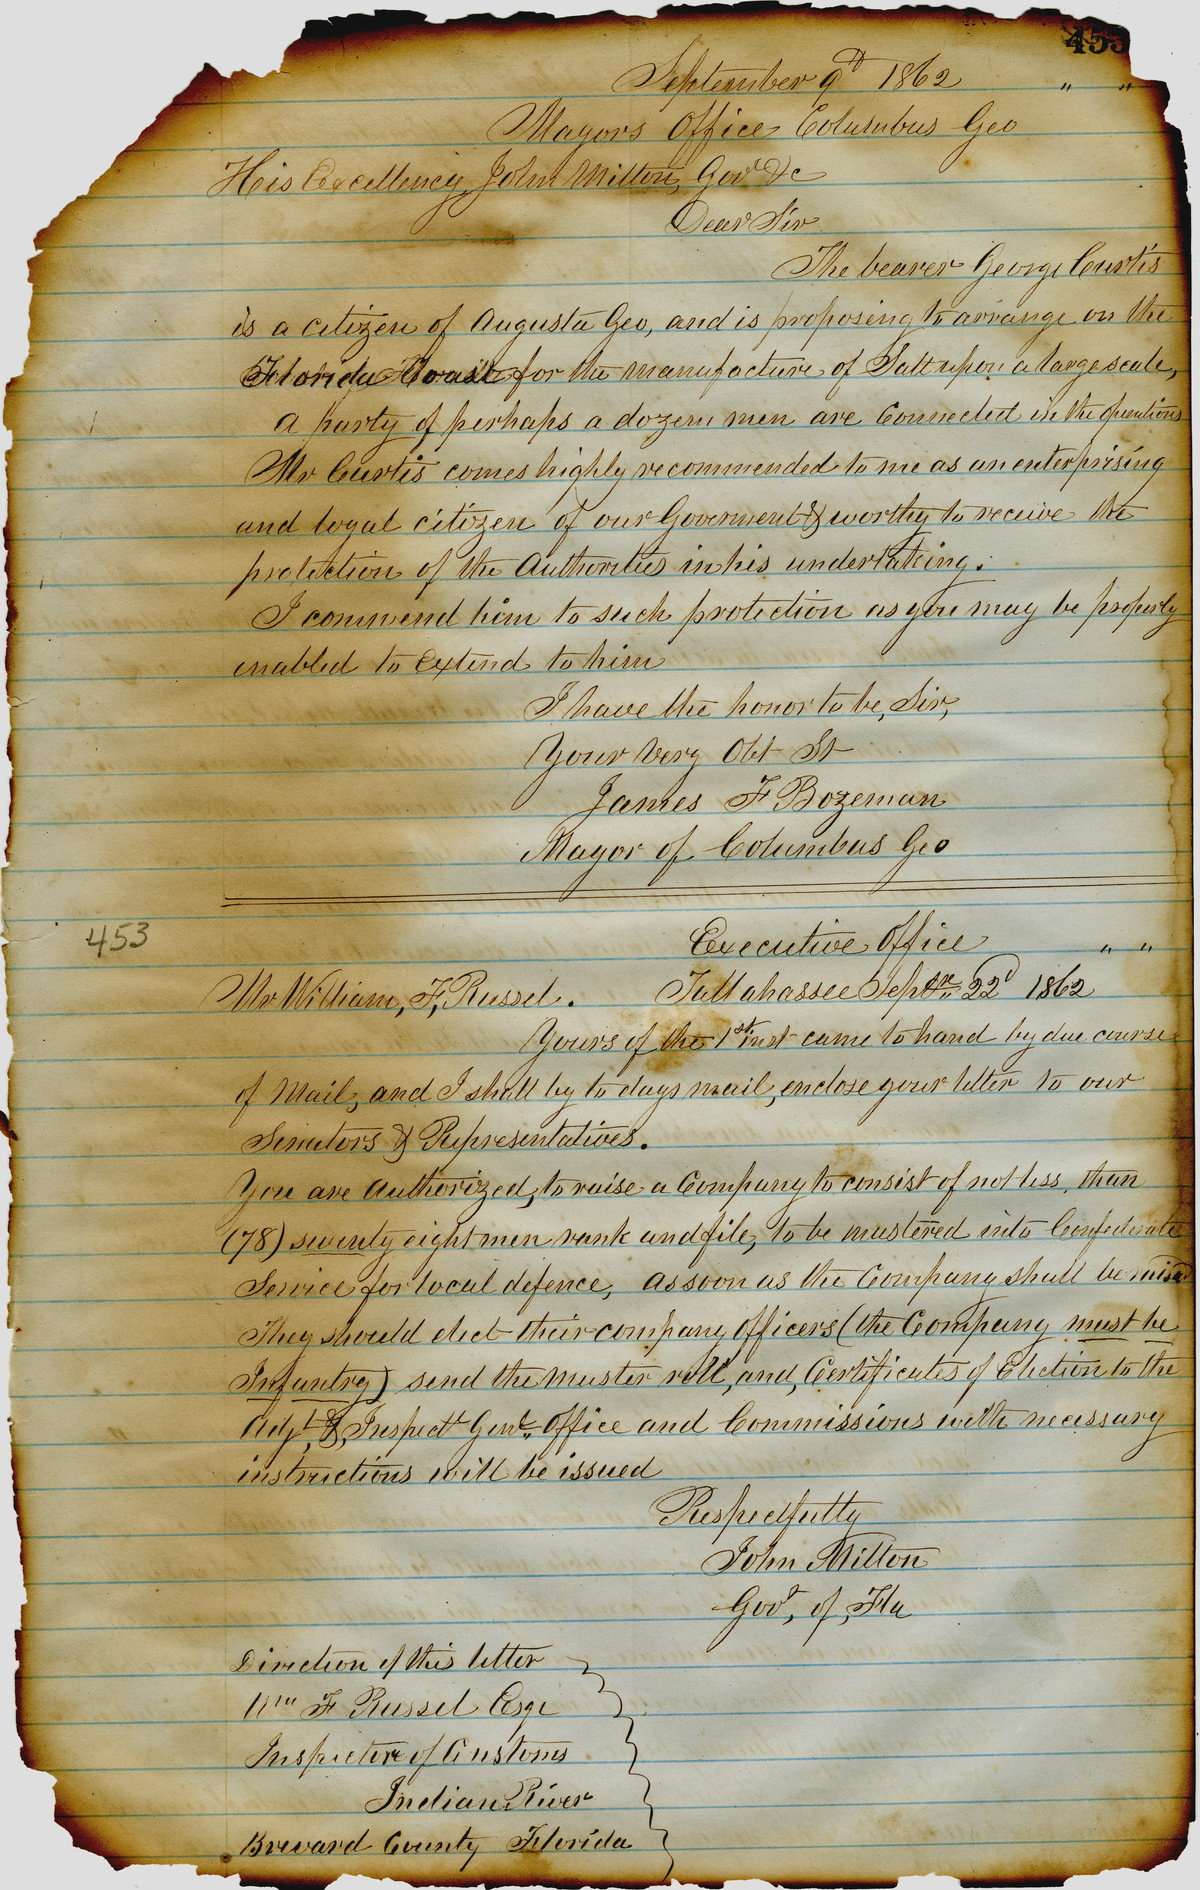 453
September 9th 1862 " "
Mayors Office Columbus Geo
His Excellency John Milton, Govr &c
Dear Sir
The bearer George Curtis
is a citizen of Augusta Geo, and is proposing to arrange on the
Florida Coast for the manufacture of Salt upon a large scale,
A party of perhaps a dozen men are Connected in the operations
Mr Curtis comes highly recommended to me as an enterprising
and loyal citizen of our Government & worthy to receive the
protection of the Authorities in his undertaking.
I commend him to such protection as you may be properly
enabled to extend to him
I have the honor to be, Sir,
Your Very Obt St
James F Bozeman
Mayor of Columbus Geo
453
Executive Office " "
Mr William, F, Russel. Tallahassee Septr 22d 1862
Yours of the 1st inst came to hand by due course
of Mail, and I shall by to days mail, enclose your letter to our
Senators & Representatives.
You are Authorized, to raise a Company to consist of not less than
(78) seventy eight men rank and file, to be mustered into Confederate
Service for local defence, As soon as the Company shall be raised
They should elect their company Officers (the Company must be
Infantry) send the muster roll, and, Certificates of Election to the
Adjt, &, Inspect Genl. Office and Commissions with necessary
instructions will be issued
Respectfully
John Milton
Govr, of, Fla
Direction of this letter
Wm F Russel Esqr
Inspector of Customs
Indian River
Brevard County Florida